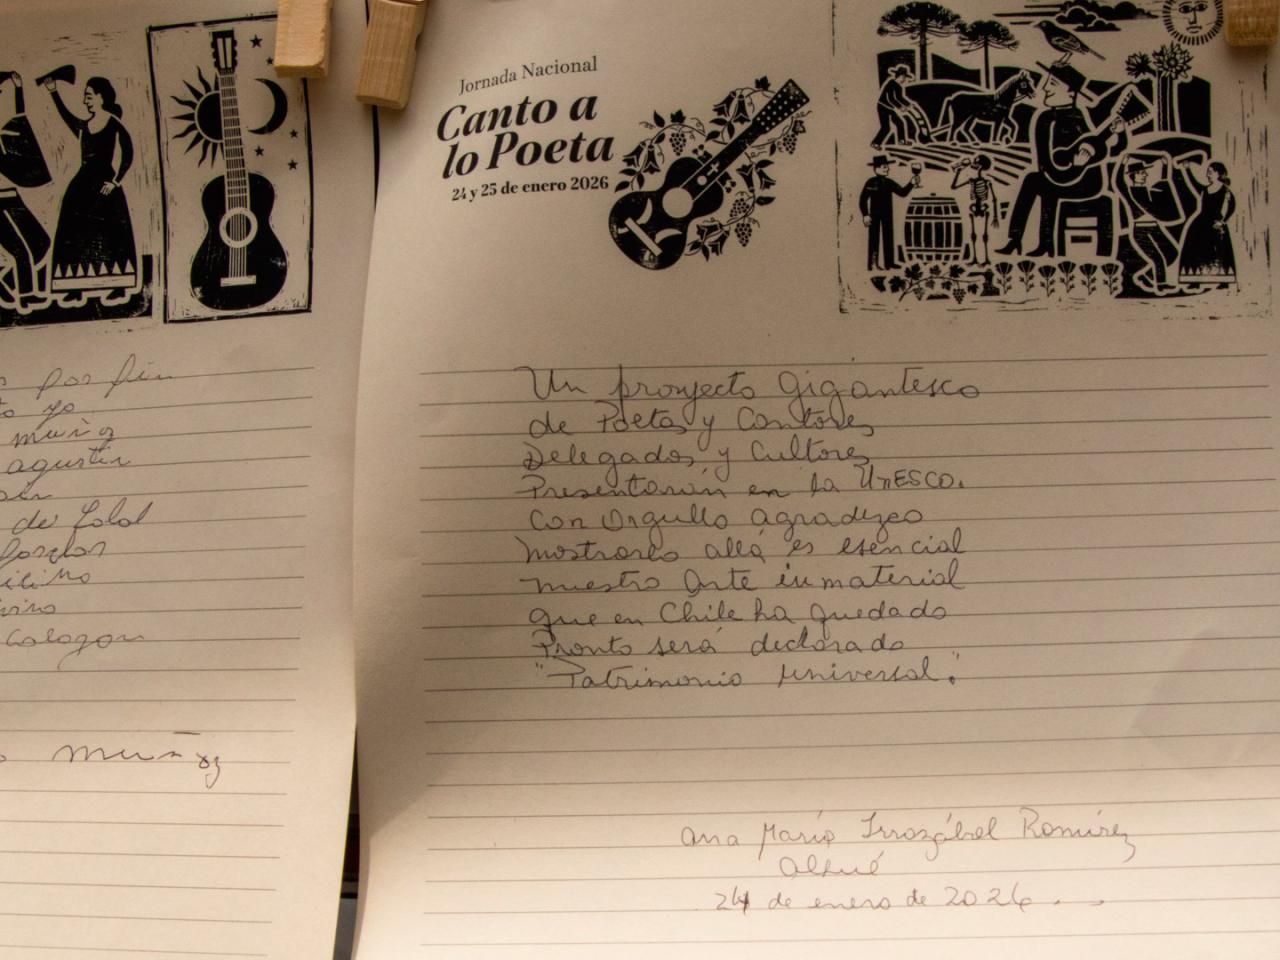 por fin
yo
muñoz
agustin
de Lolol
muñoz
Jornada Nacional
Canto a
lo Poeta
24 y 25 de enero 2026
Un proyecto Gigantesco
de Poetas y Cantores
Delegados y Cultores
Presentarán en la UnESCO.
Con Orgullo agradezco
mostrarlo allá es esencial
nuestro Arte inmaterial
que en Chile ha quedado
Pronto será declarado
"Patrimonio Universal."
Ana María Irrazábal Ramírez
Alhué
24 de enero de 2026 . .